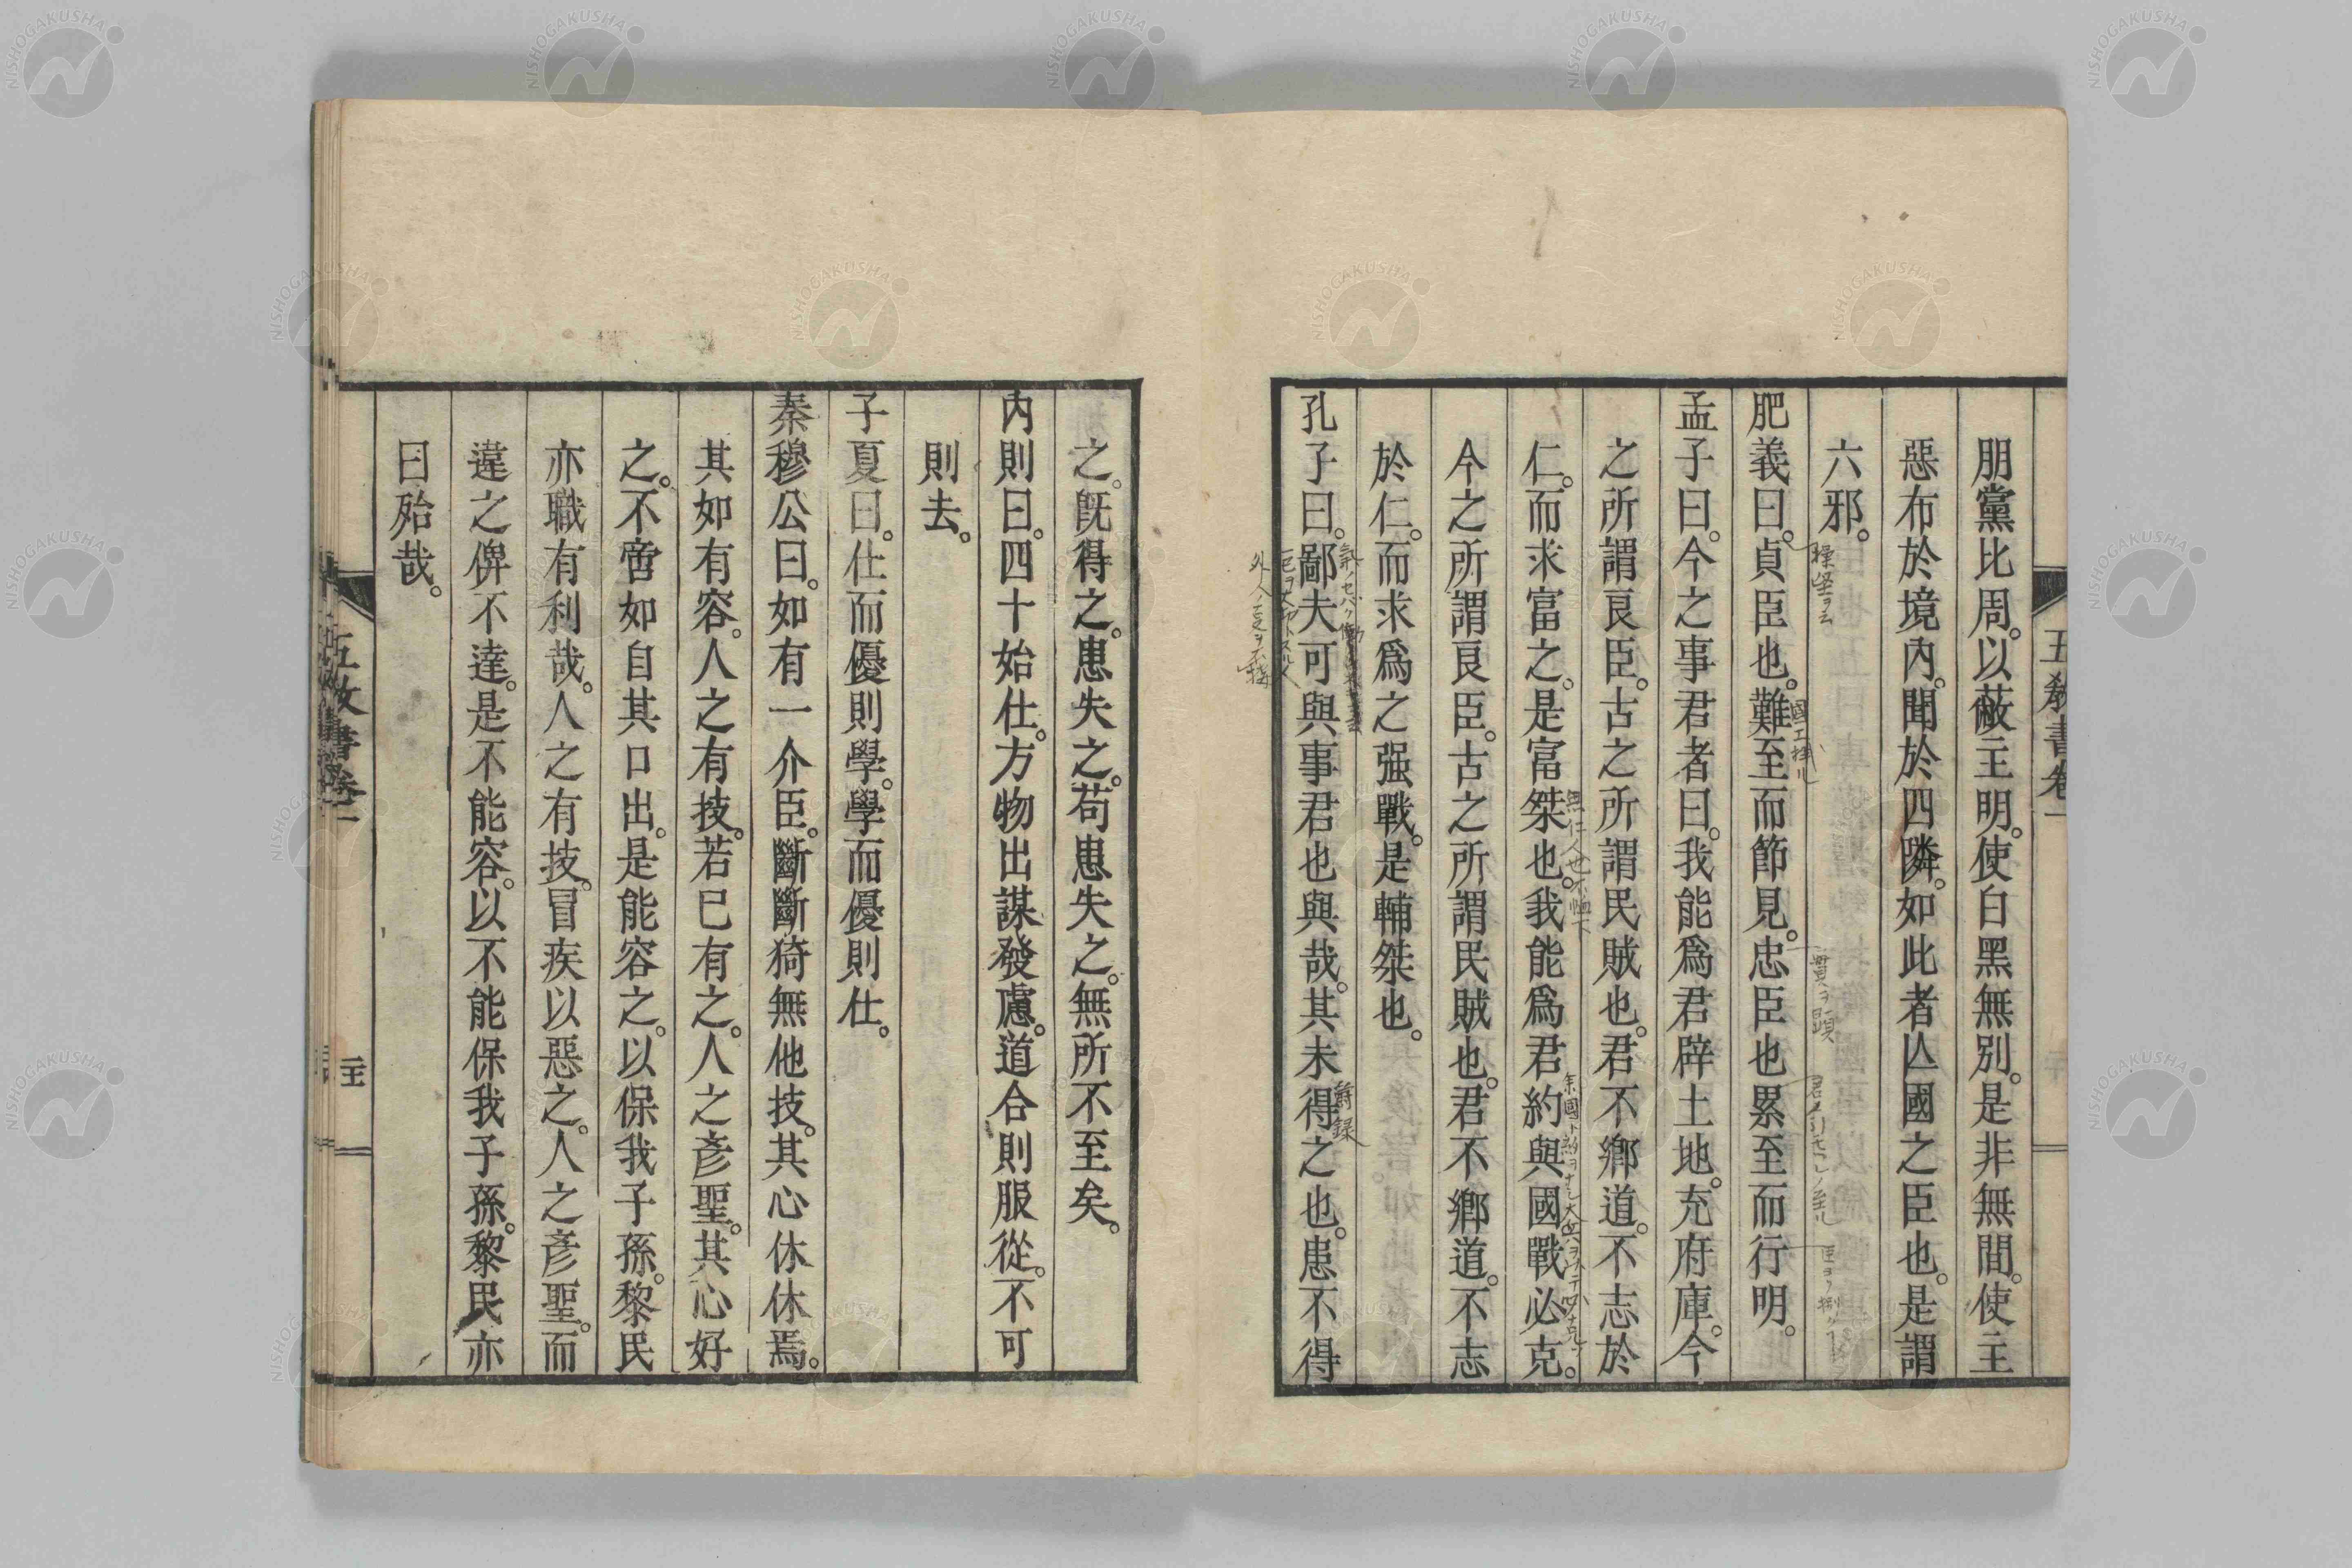 朋黨比周。以蔽主明。使白黑無別。是非無間。使主
惡布於境內。聞於四隣。如此者亾國之臣也。是謂
六邪。
肥義曰。貞臣也。難至而節見。忠臣也累至而行明。
孟子曰。今之事君者曰。我能爲君辟土地。充府庫。今
之所謂良臣。古之所謂民賊也。君不鄉道。不志於
仁。而求富之。是富桀也。我能爲君約與國戰必克。
今之所謂良臣。古之所謂民賊也。君不鄉道。不志
於仁。而求爲之强戰。是輔桀也。
孔子曰。鄙夫可與事君也與哉。其未得之也。患不得
之。旣得之。患失之。苟患失之。無所不至矣。
內則曰。四十始仕。方物出謀發慮。道合則服從。不可
則去。
子夏曰。仕而優則學。學而優則仕。
秦穆公曰。如有一介臣。斷斷猗無他技。其心休休焉。
其如有容。人之有技。若已有之。人之彥聖。其心好
之。不啻如自其口出。是能容之。以保我子孫。黎民
亦職有利哉。人之有技。冒疾以惡之。人之彥聖。而
違之俾不達。是不能容。以不能保我子孫。黎民亦
曰殆哉。
五教書卷一
NISHOGAKUSHA